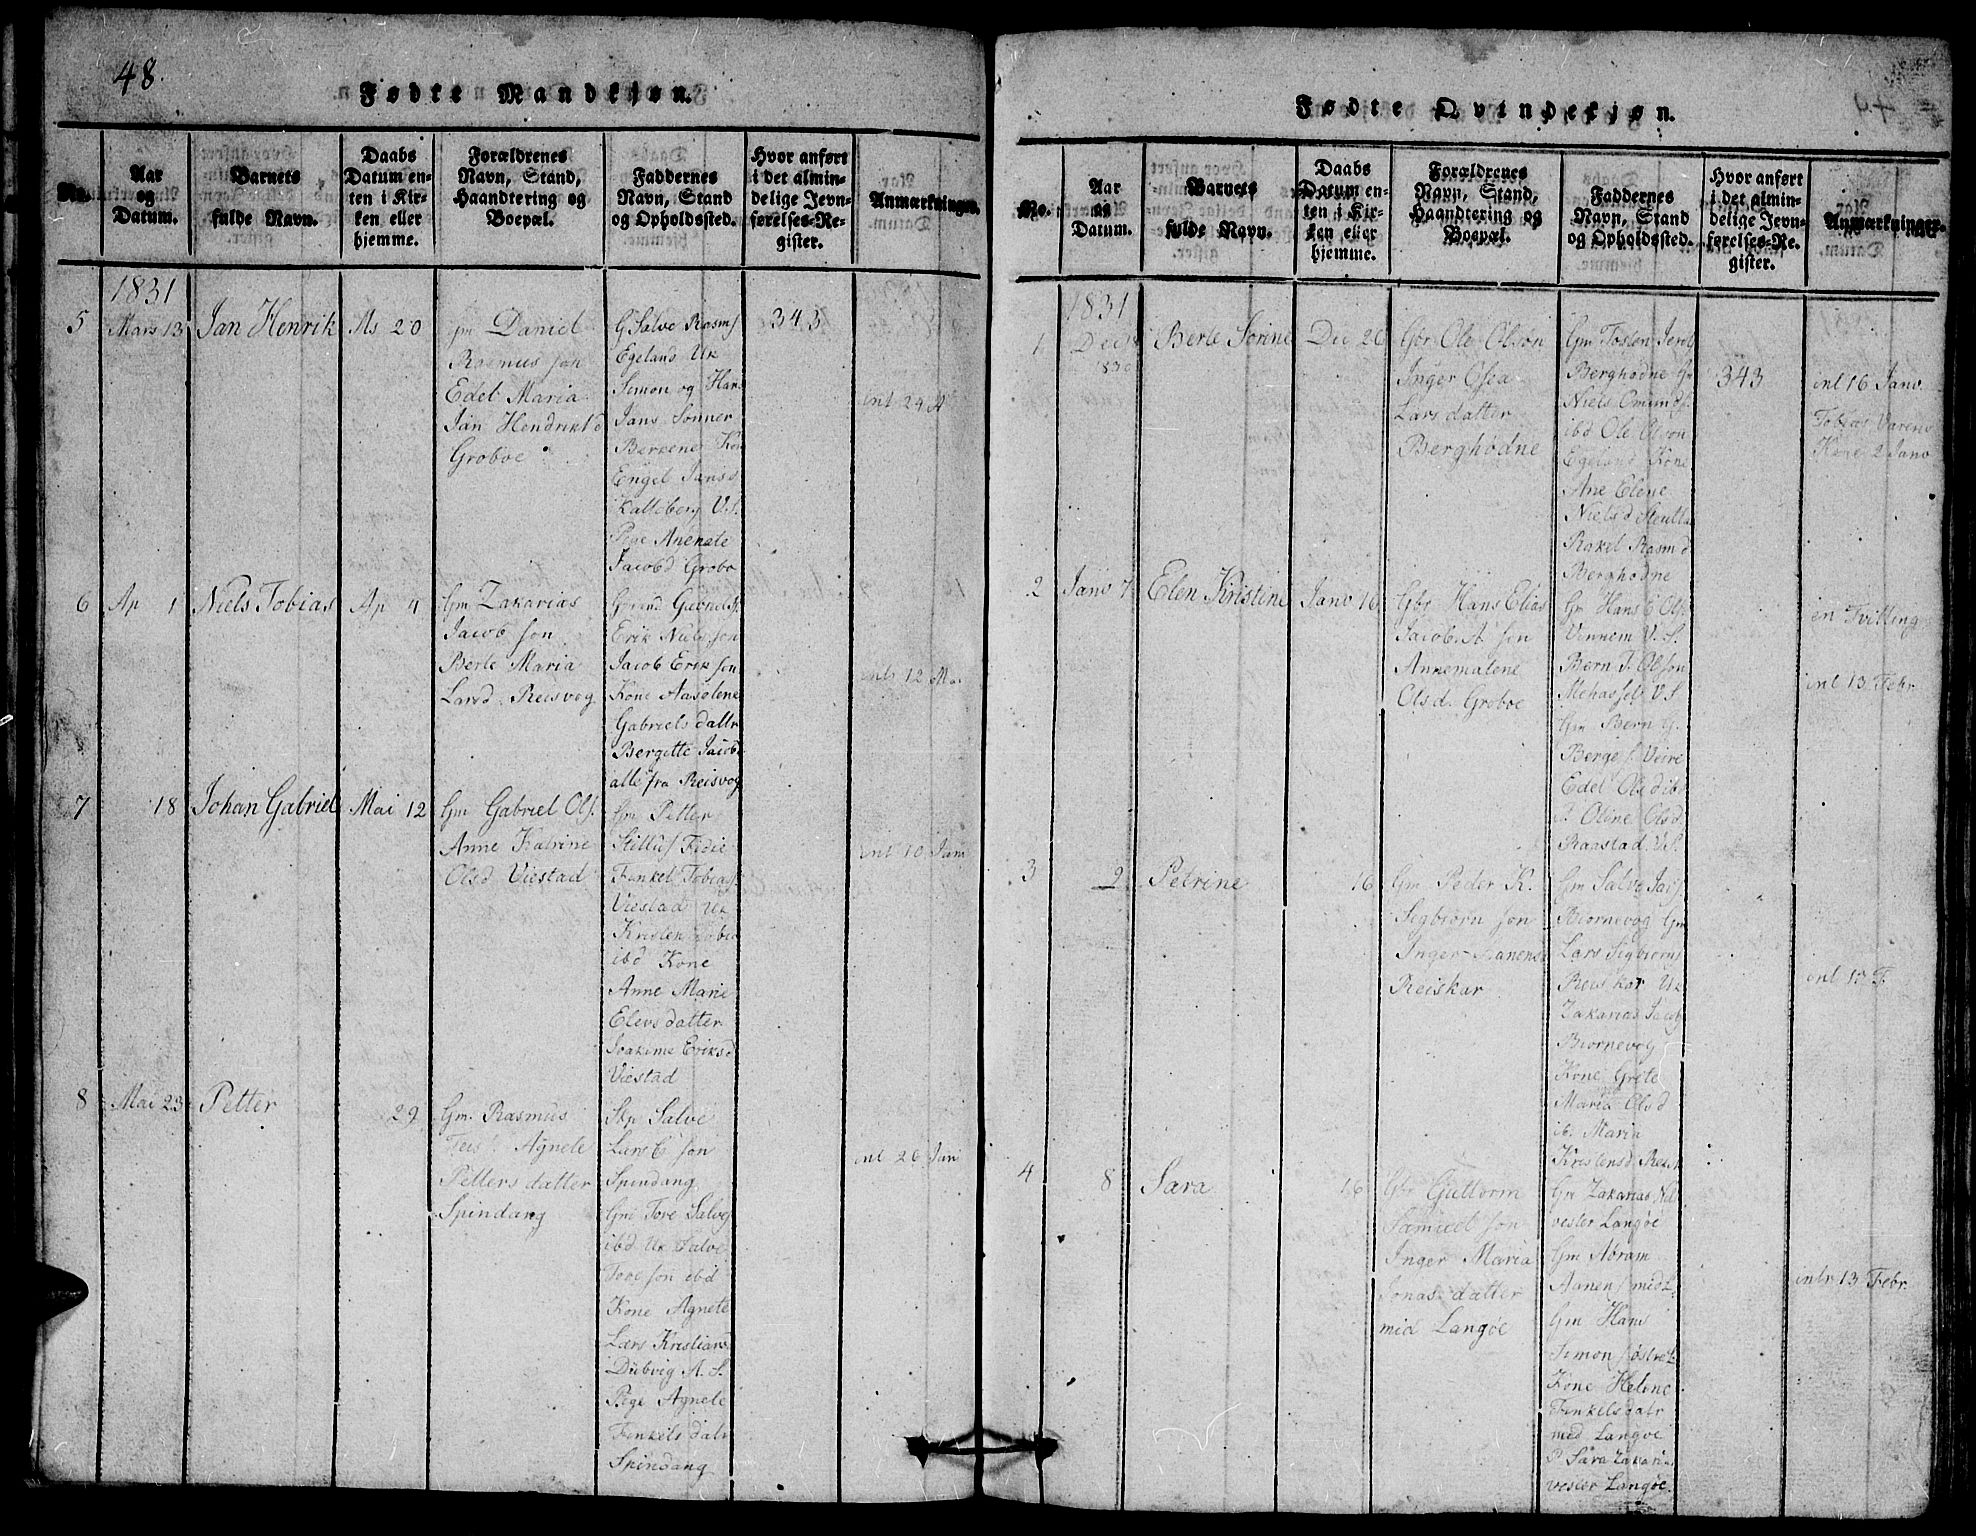 48.
Fødte Mandkjøn.
No.
Aar
og
Datum.
Barnets
fulde Navn.
Daabs
Datum en-
ten i Kir-
ken eller
hjemme.
Forældrenes
Navn, Stand,
Haandtering og
Boepæl.
Faddernes
Navn, Stand
og Opholdssted.
Hvor anført
i det almin-
delige Jevn-
førelses-Re-
gister.
Anmærkninger.
1831
5
Mars 13
Jan Henrik
Ms 20
Gm Daniel
Rasmus søn
Edel Maria
Jan Hendrikd
Groboe
G Salve Rasm
Egeland Uk
Simon og Hans
Jans Sønner
Berrene Kon
Engel Jansd
Kalleberg V.S.
Pige Anenate
Jacobd Grobo
343
int 24 A
6
Ap 1
Niels Tobias
Ap 4
Gm Zakarias
Jacob søn
Berte Maria
Larsd. Reisvog
Erik Niels søn
Jacob Erik søn
Kone Aasolene
Gabriels dattr
Bergitte Jacobd
alle fra Reisvog
intr 12 Mai
7
18
Johan Gabriel
Mai 12
Gm Gabriel Ols.
Anne Katrine
Olsd Viestad
Gm Petter
Fidie
Finkel Tobias
Viestad Uk
Kristen Tobia
ibd Kone
Anne Marie
Elevs datter
Joakime Eriksd
Viestad
int 10 Jani
8
Mai 23
Petter
29
Gm. Rasmus
Agnete
Petters datter
Spindang
Salve
Lars søn
Spindang
Gm Tore Salves
ibd Uk Salve
Tore søn ibd
Kone Agnete
Lars Kristians
Dubvig A. S.
Pige Agnete
Finkels datr
Spindang
int 26 Jani
Fødte Qvindekjøn.
No.
Aar
og
Datum.
Barnets
fulde Navn.
Daabs
Datum en-
ten i Kir-
ken eller
hjemme.
Forældrenes
Navn, Stand,
Haandtering og
Boepæl.
Faddernes
Navn, Stand
og Opholdssted.
Hvor anført
i det almin-
delige Jevn-
førelses-Re-
gister.
Anmærkninger.
1831
1
Dec
1830
Berte Sorine
Dec 26
Gbr Ole Olsøn
Inger Osea
Lars datter
Berghodne
Gm Tosten
Berghodne
Niels Omunds
ibd Ole Olsøn
Egeland Kone
Ane Elene
Nielsd
Rakel Rasmd
Berghodne
343
int 16 Janv
Tobias
Kone 2 Janv
2
Janv 7
Elen Kristine
Janv 16
Gbr Hans Elias
Jacob. A søn
Annemalene
Olsd. Groboe
Gm Hans E Ols
Vennem V. S.
Bern T. Olsøn
Mehassel V. S
Gm Bern G.
Berge Veire
Edel Olsd ib
P. Oline Olsd
Raastad V. S.
en Tvilling
int 13 Febr
3
9
Petrine
16
Gm Peder K.
Sigbiørn søn
Inger
Reiskar
Gm Salve
Biornevog Gm
Lars Sigbiørns
Reiskar Uk
Zakarias Jacob
Biornevog
Kone Grete
Maria Olsd
ib. Maria
Kristensd
int 17 F
4
8
Sara
16
Gbr Guttorm
Samuel søn
Inger Maria
Jonas datter
mid Langøe
Gm Zakarias
vester Langøe
Gm Abram
Aanens mid L.
Gm Hans
Simons østre L
Kone Helene
Finkelsdatr
med Langøe
P Sara Zakari
vester Langøe.
intr 13 Febr.